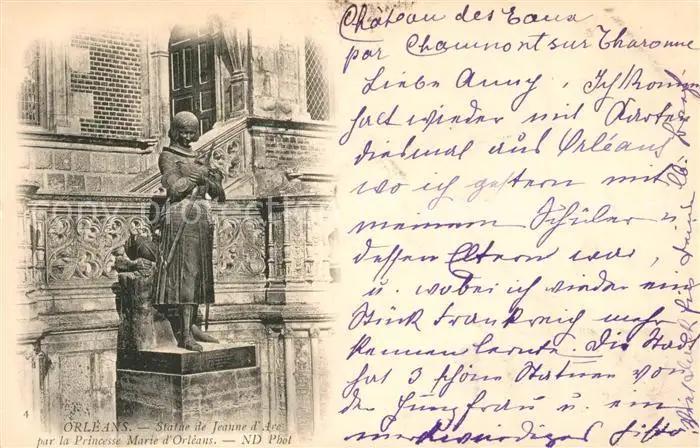 Château des Eaux
par Chaumont sur Tharonne
Liebe Anny, Ich komm
halt wieder mit Karten
diesmal aus Orléans
wo ich gestern mit
meinem Schüler u.
dessen Eltern war,
u. wobei ich wieder ein
Stück Frankreich mehr
kennen lernte. Die Stadt
hat 3 schöne Statuen von
der Jungfrau u. ein
merkwürdiges
4
ORLÉANS. — Statue de Jeanne d'Arc
par la Princesse Marie d'Orléans. — ND Phot